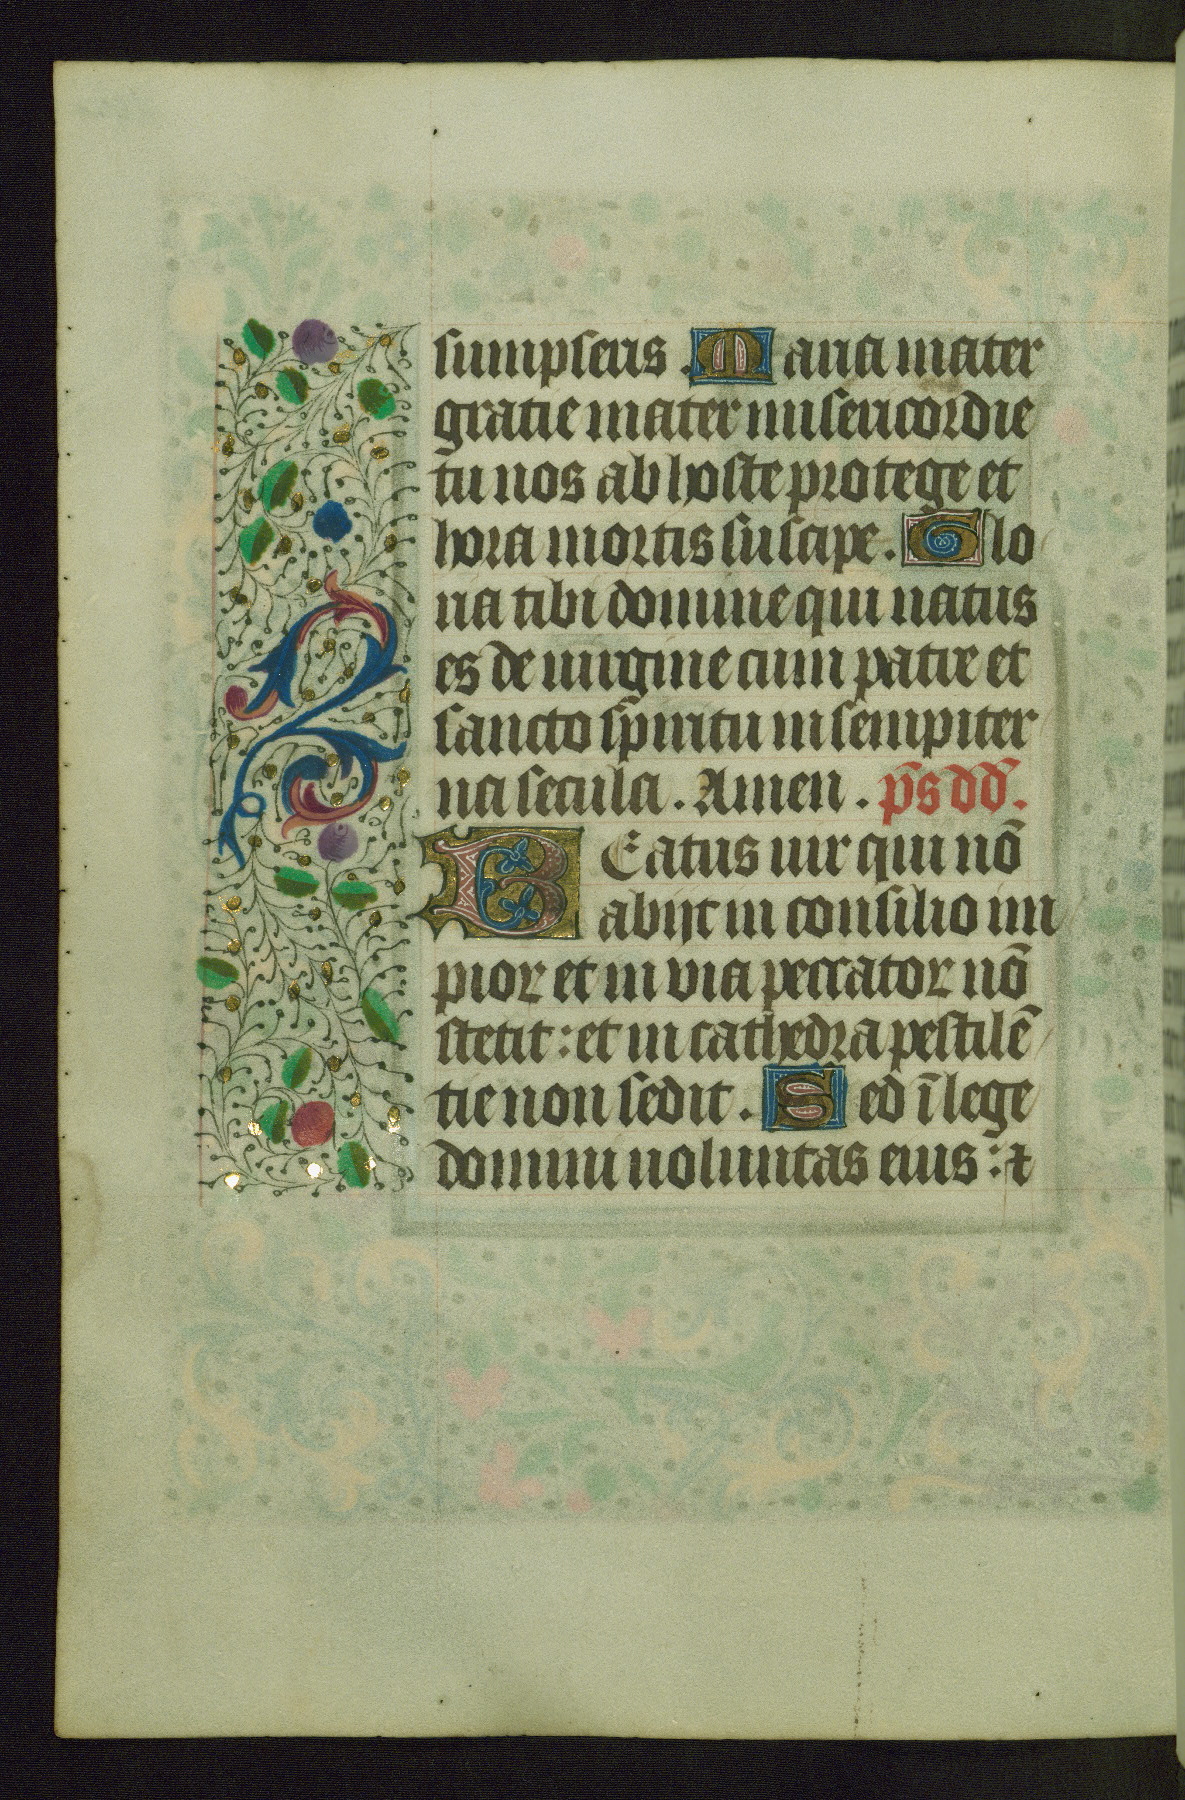 sumpseris. Maria mater
gratie mater misericordie
tu nos ab hoste protege et
hora mortis suscipe. Glo
ria tibi domine qui natus
es de uirgine cum patre et
sancto sp̄iritu in sempiter
na secula. Amen. p̄s dd̄.
Beatus uir qui nō
abijt in consilio im
pioꝝ et in via peccatoꝝ nō
stetit: et in cathedra pestilē
tie non sedit. Sed ī lege
domini uoluntas eius: ⁊